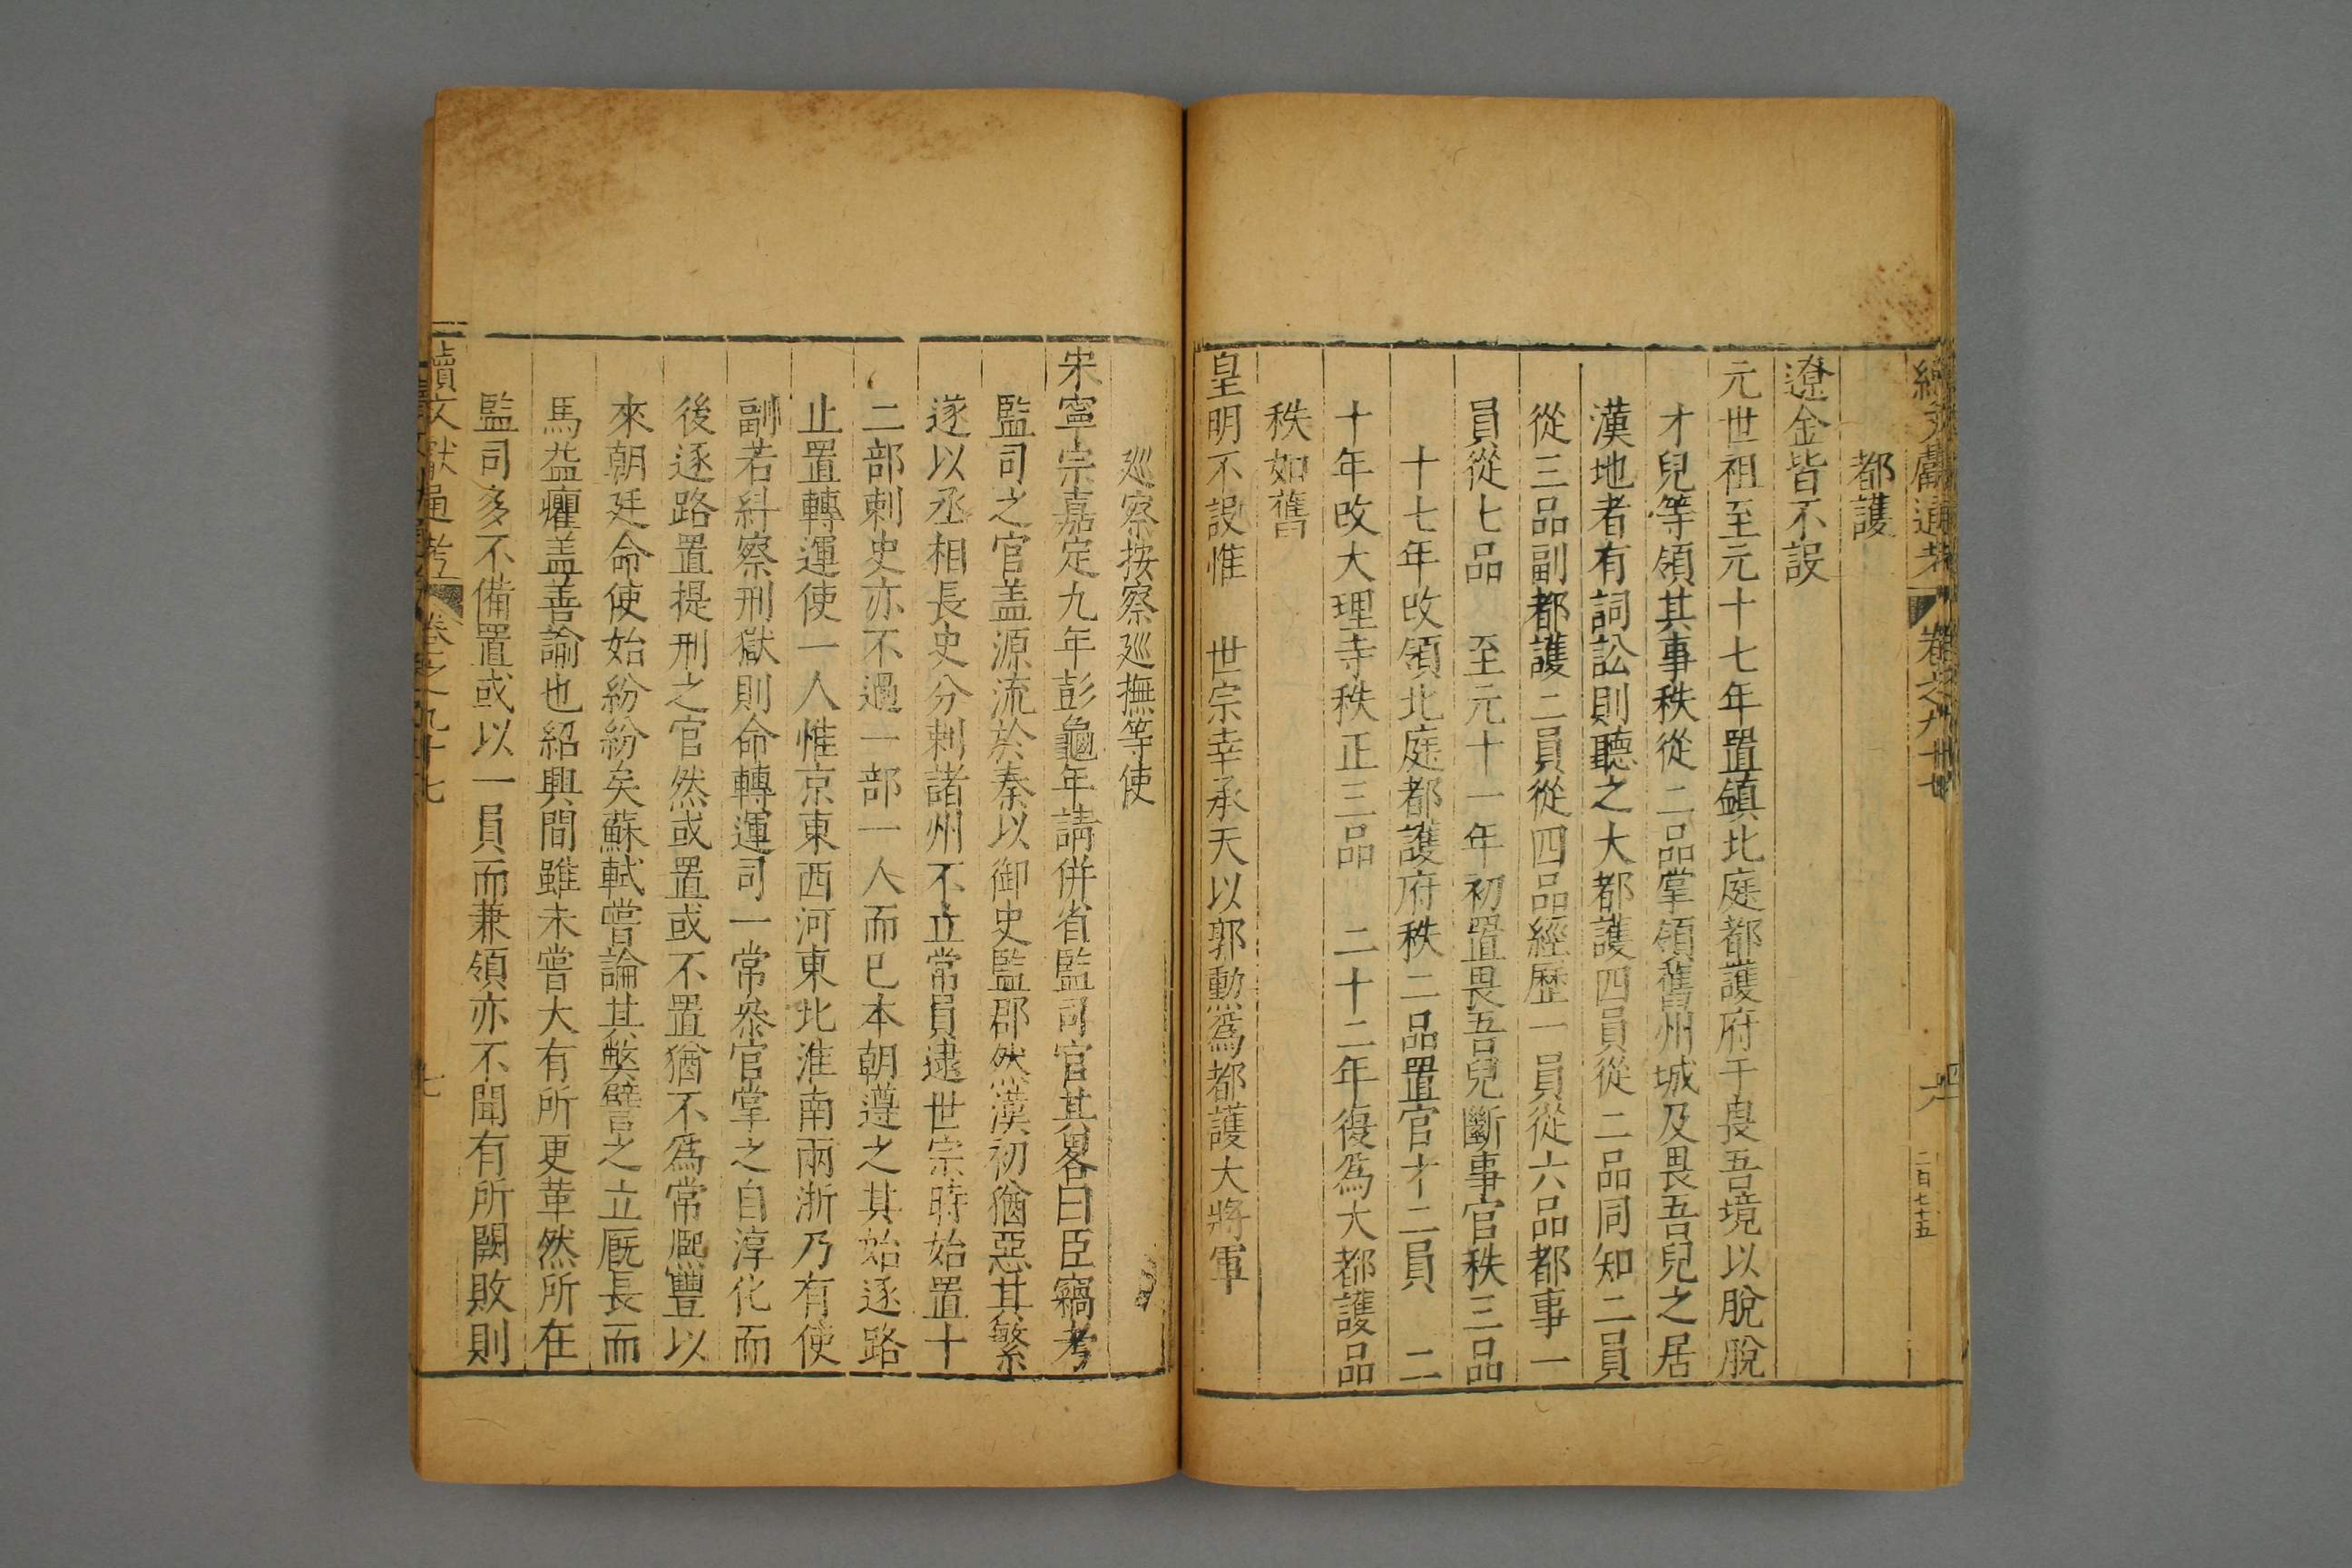 續文獻通考
卷之九十七
二百七十五
都護
遼金皆不設
元世祖至元十七年置鎮北庭都護府于畏吾境以脫脫
才兒等領其事秩從二品掌領舊州城及畏吾兒之居
漢地者有詞訟則聽之大都護四員從二品同知二員
從三品副都護二員從四品經歷一員從六品都事一
員從七品　至元十一年初置畏吾兒斷事官秩三品
十七年改領北庭都護府秩二品置官才二員　二
十年改大理寺秩正三品　二十二年復爲大都護品
秩如舊
皇明不設惟　世宗幸承天以郭勳爲都護大將軍
巡察按察巡撫等使
宋寧宗嘉定九年彭龜年請併省監司官其畧曰臣竊考
監司之官盖源流於秦以御史監郡然漢初猶惡其繁
遂以丞相長史分刺諸州不立常員逮世宗時始置十
二部刺史亦不過一部一人而已本朝遵之其始逐路
止置轉運使一人惟京東西河東北淮南兩浙乃有使
副若糾察刑獄則命轉運司一常叅官掌之自淳化而
後逐路置提刑之官然或置或不置猶不爲常熈豐以
來朝廷命使始紛紛矣蘇軾嘗論其弊譬之立厩長而
馬益癯盖善諭也紹興間雖未嘗大有所更革然所在
監司多不備置或以一員而兼領亦不聞有所闕敗則
續文獻通考
卷之九十七
七